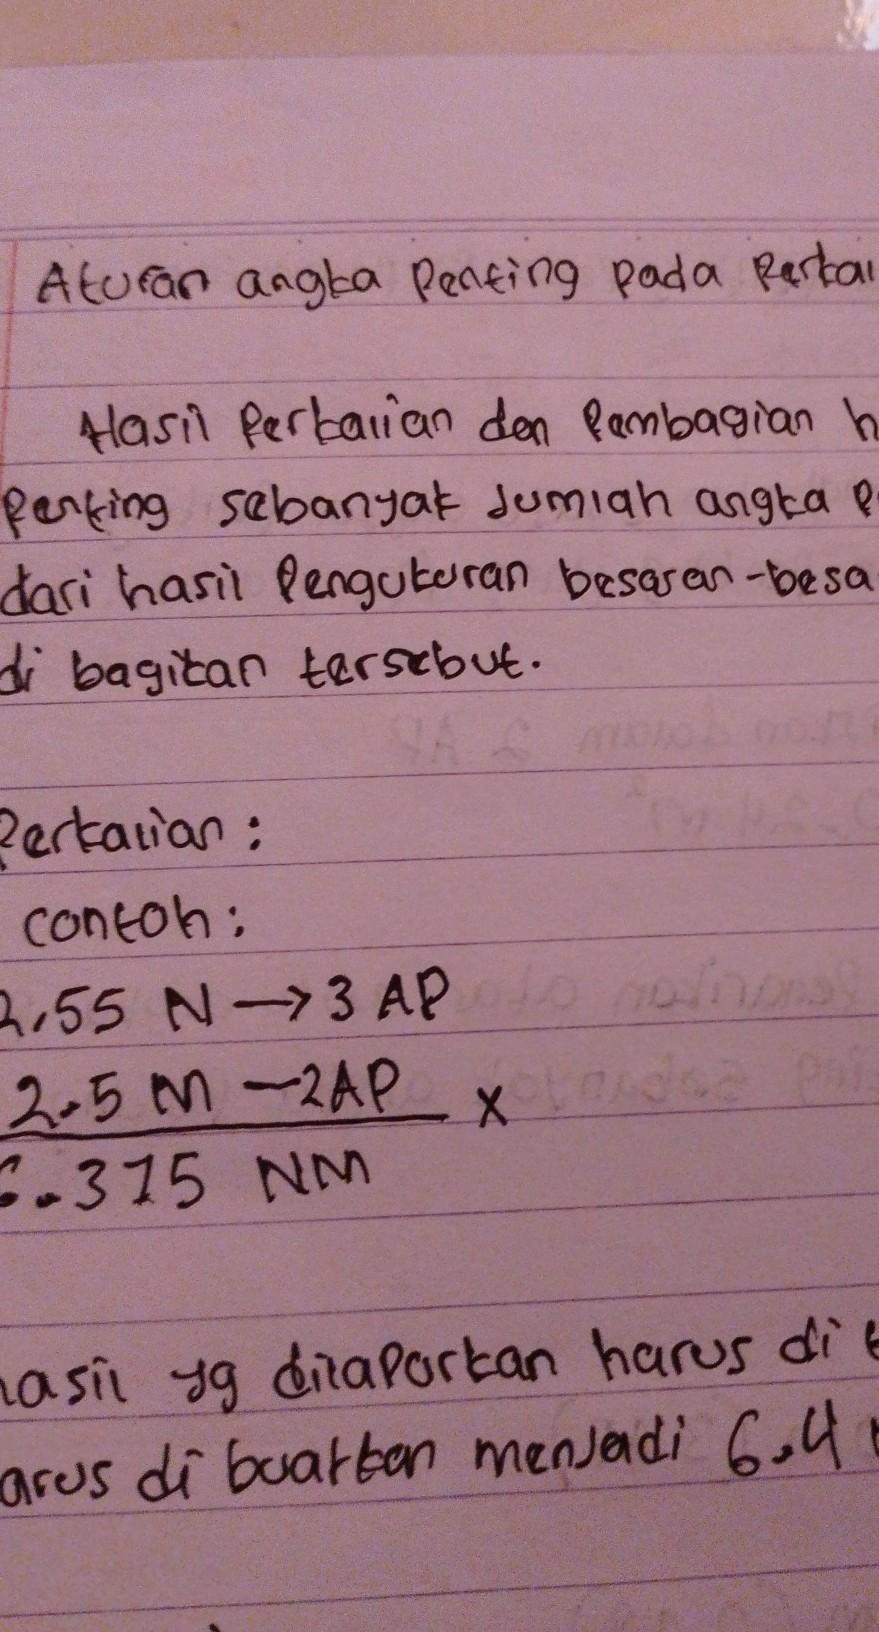 Aturan angka Penting pada Perkal
Hasil Perkalian dan Pembagian h
Penting sebanyak Jumlah angka P
dari hasil Pengukuran besaran-besa
di bagikan tersebut.
Perkalian :
contoh :
2,55 N → 3 AP
2.5 M - 2AP x
6.375 NM
hasil yg dilaporkan harus di t
arus di buatkan menjadi 6.4